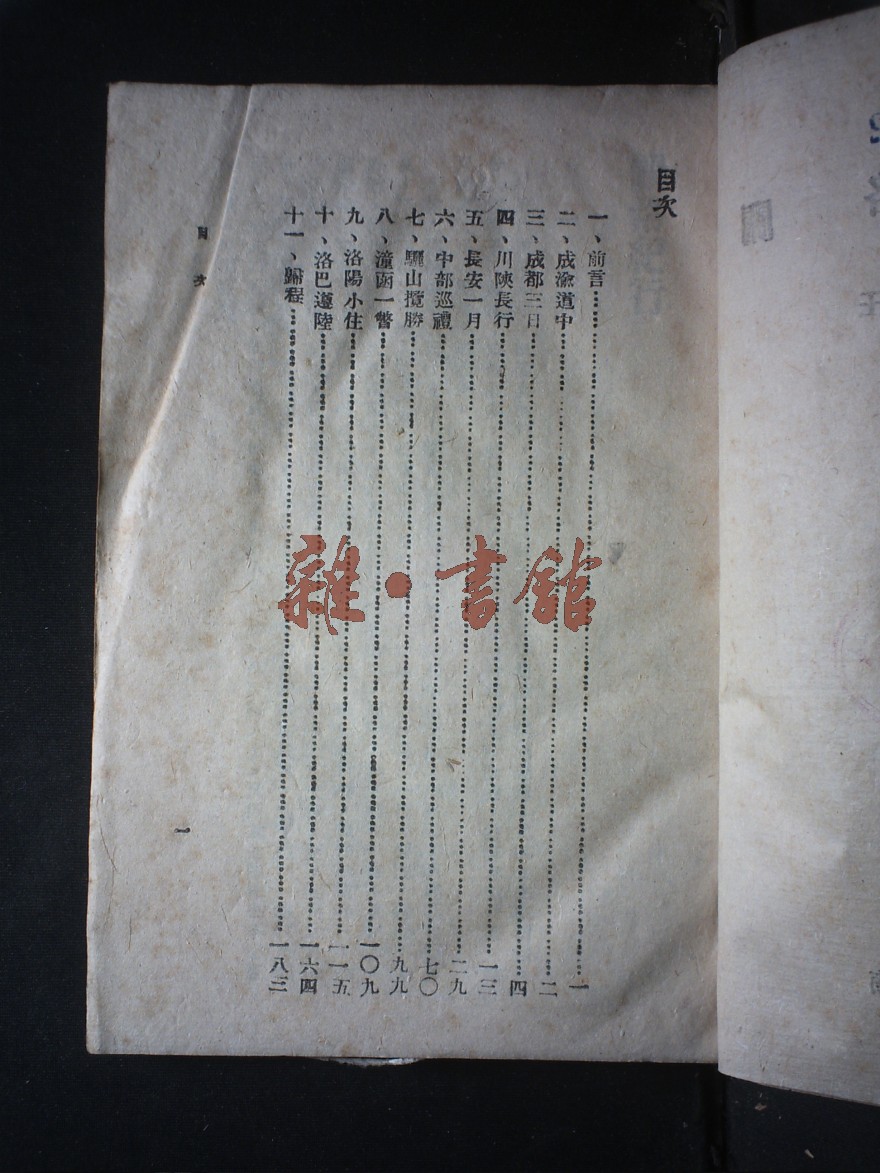 目次
一、前言……一
二、成渝道中……二
三、成都三日……四
四、川陝長行……一三
五、長安一月……二九
六、中部巡禮……七〇
七、驪山攬勝……九九
八、潼函一瞥……一〇九
九、洛陽小住……一一五
十、洛巴遵陸……一六四
十一、歸程……一八三
目次
一
雜·書館